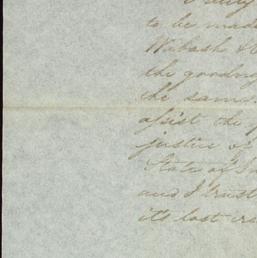 to be made
Wabash &
the goodn
the same
assist the
justice of
State of
and I trust
its last